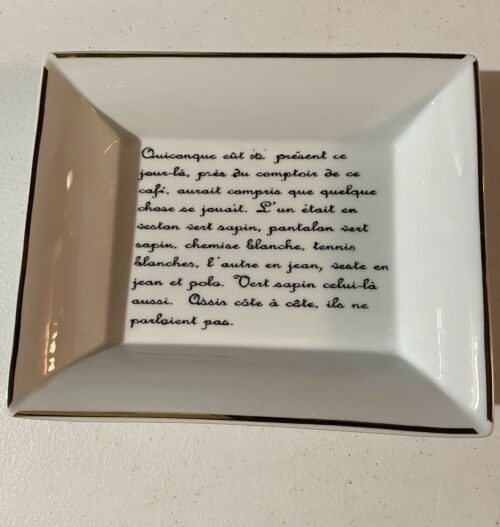 Quiconque eût été présent ce
jour-là, près du comptoir de ce
café, aurait compris que quelque
chose se jouait. L'un était en
veston vert sapin, pantalon vert
sapin, chemise blanche, tennis
blanches, l'autre en jean, veste en
jean et polo. Vert sapin celui-là
aussi. Assis côte à côte, ils ne
parlaient pas.